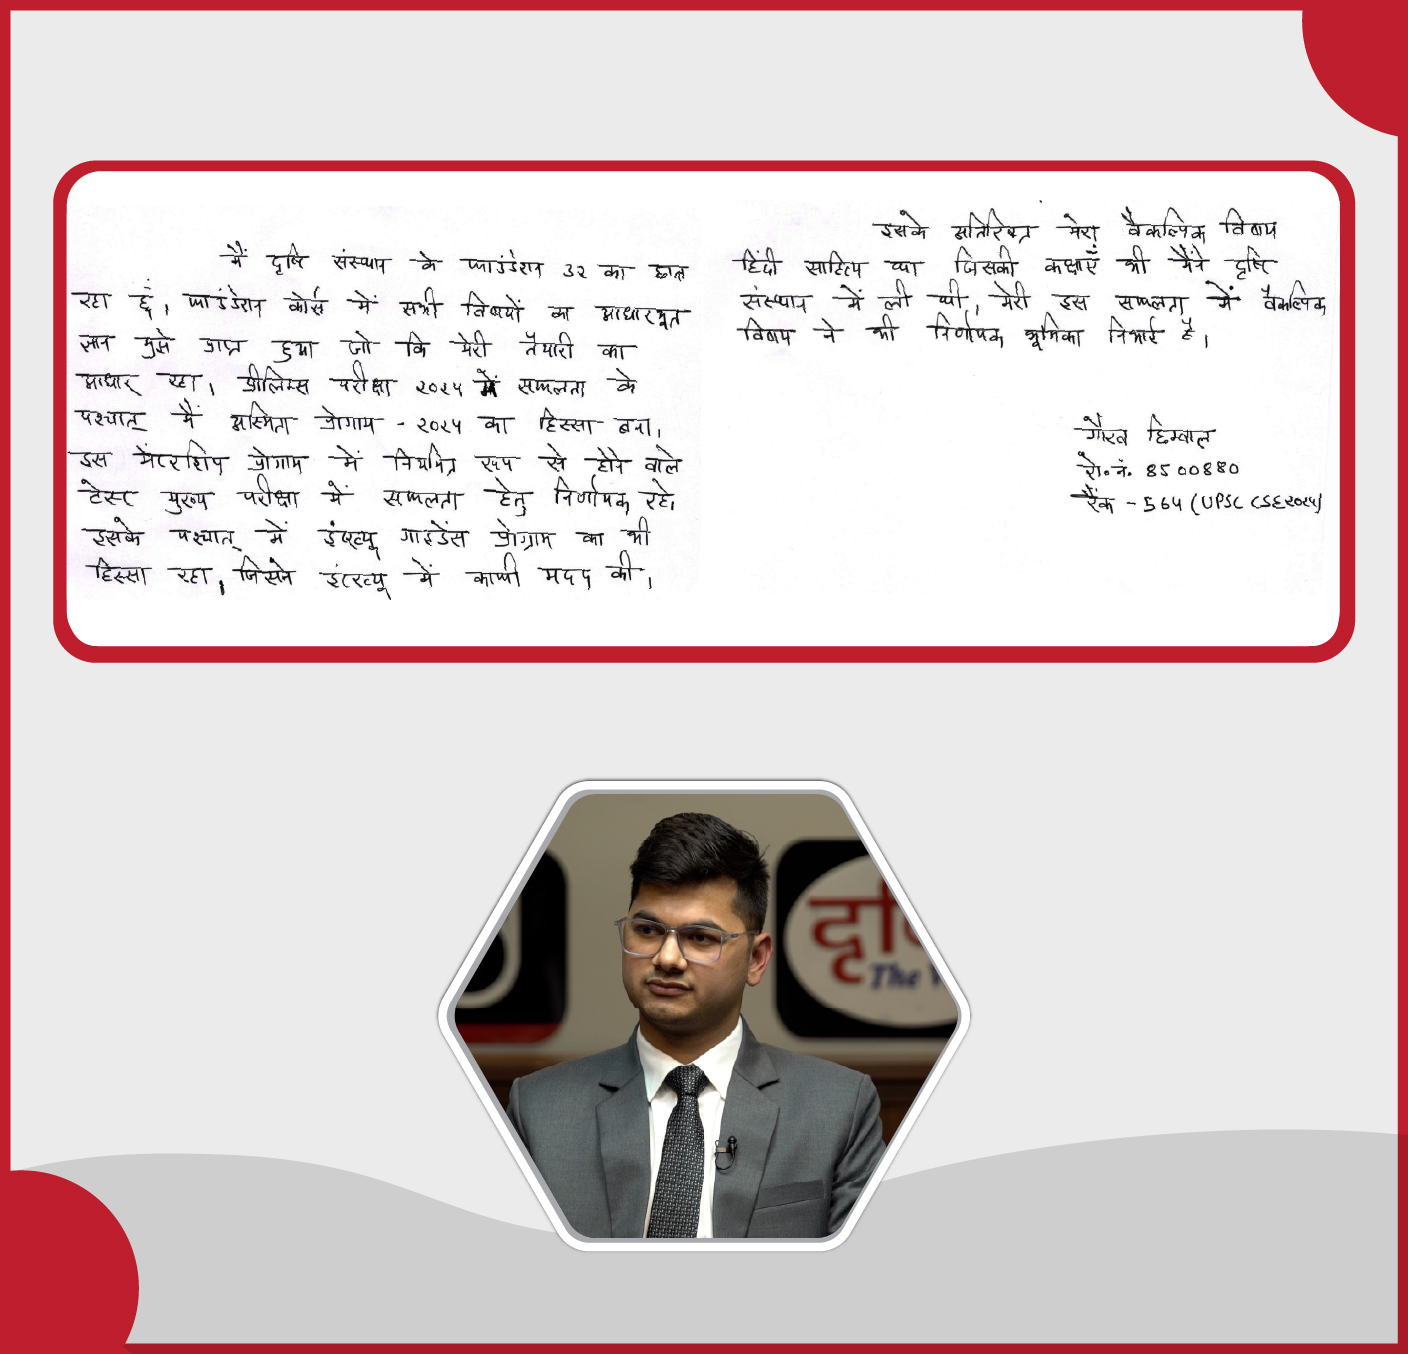 मैं दृष्टि संस्थान के फाउंडेशन ३२ का छात्र
रहा हूं, फाउंडेशन कोर्स में सभी विषयों का आधारभूत
ज्ञान मुझे प्राप्त हुआ जो कि मेरी तैयारी का
आधार रहा, प्रीलिम्स परीक्षा २०२५ में सफलता के
पश्चात् मैं अस्मिता प्रोग्राम - २०२५ का हिस्सा बना,
इस मेंटरशिप प्रोग्राम में नियमित रूप से होने वाले
टेस्ट मुख्य परीक्षा में सफलता हेतु निर्णायक रहे,
इसके पश्चात् में इंटरव्यू गाइडेंस प्रोग्राम का भी
हिस्सा रहा, जिसने इंटरव्यू में काफी मदद की,
इसके अतिरिक्त मेरा वैकल्पिक विषय
हिंदी साहित्य था जिसकी कक्षाएँ भी मैंने दृष्टि
संस्थान में ली थी, मेरी इस सफलता में वैकल्पिक
विषय ने भी निर्णायक भूमिका निभाई है,
गौरव छिम्वाल
रो.नं. 8500880
रैंक - 564 (UPSC CSE २०२५)
दृष्टि
The V